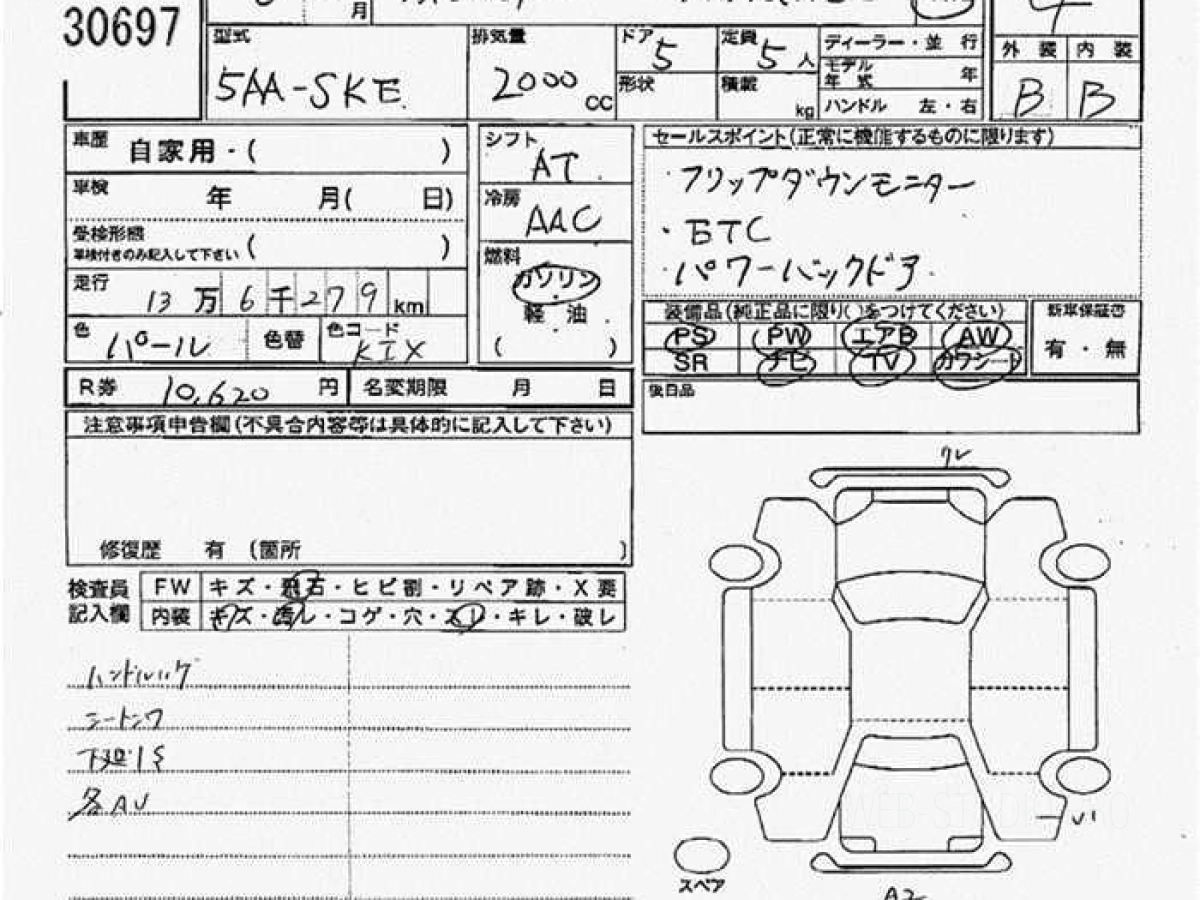 30697
月
4
型式 5AA-SKE
排気量 2000 cc
ドア 5
定員 5 人
形状
積載 kg
ディーラー・並 行
モデル年式 年
ハンドル 左・右
外 装 内 装
B B
車歴 自家用・( )
車検 年 月( 日)
受検形態 車検付きのみ記入して下さい ( )
走行 13万6千279 km
色 パール 色替 色コード
R券 10,620 円 名変期限 月 日
シフト AT
冷房 AAC
燃料 ガソリン
軽 油
( )
セールスポイント(正常に機能するものに限ります)
・フリップダウンモニター
・ETC
・パワーバックドア
装備品(純正品に限り( )をつけてください)
PS PW エアB AW
SR ナビ TV カワシート
新車保証書
有・無
後日品
注意事項申告欄(不具合内容等は具体的に記入して下さい)
修復歴 有 (箇所 )
検査員記入欄
FW キズ・飛石・ヒビ割・リペア跡・X要
内装 キズ・汚レ・コゲ・穴・スレ・キレ・破レ
シートシワ
下廻りS
各AU
スペア
A2